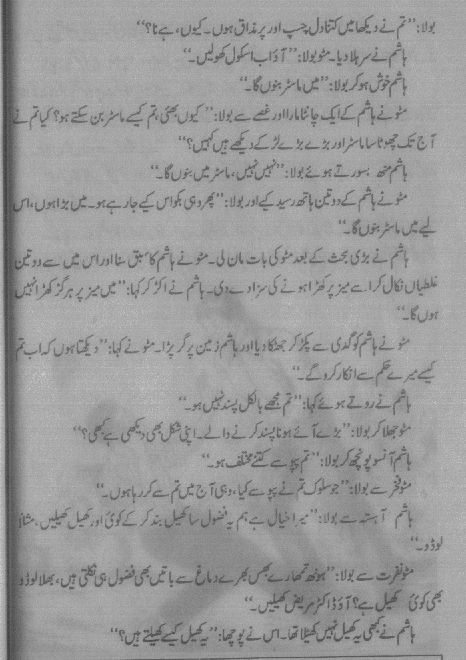 بولا: ’’تم نے دیکھا میں کتنا دل چسپ اور پرمذاق ہوں۔ کیوں، ہے نا؟‘‘
ہاشم نے سر ہلا دیا۔ مٹو بولا: ’’آؤ اب اسکول کھولیں۔‘‘
ہاشم خوش ہو کر بولا: ’’میں ماسٹر بنوں گا۔‘‘
مٹو نے ہاشم کے ایک چانٹا مارا اور غصے سے بولا: ’’کیوں بھئی، تم کیسے ماسٹر بن سکتے ہو؟ کیا تم نے
آج تک چھوٹا سا ماسٹر اور بڑے بڑے لڑکے دیکھے ہیں کہیں؟‘‘
ہاشم منھ بسورتے ہوئے بولا: ’’نہیں نہیں، ماسٹر میں بنوں گا۔‘‘
مٹو نے ہاشم کے دو تین ہاتھ رسید کیے اور بولا: ’’پھر وہی بکواس کیے جا رہے ہو۔ میں بڑا ہوں، اس
لیے میں ماسٹر بنوں گا۔‘‘
ہاشم نے بڑی بحث کے بعد مٹو کی بات مان لی۔ مٹو نے ہاشم کا سبق سنا اور اس میں سے دو تین
غلطیاں نکال کر اسے میز پر کھڑا ہونے کی سزا دے دی۔ ہاشم نے اکڑ کر کہا: ’’میں میز پر ہرگز کھڑا نہیں
ہوں گا۔‘‘
مٹو نے ہاشم کو گدی سے پکڑ کر جھٹکا دیا اور ہاشم زمین پر گر پڑا۔ مٹو نے کہا: ’’دیکھتا ہوں کہ اب تم
کیسے میرے حکم سے انکار کرو گے۔‘‘
ہاشم نے روتے ہوئے کہا: ’’تم مجھے بالکل پسند نہیں ہو۔‘‘
مٹو جھلا کر بولا: ’’بڑے آئے ہو ناپسند کرنے والے۔ اپنی شکل بھی دیکھی ہے کبھی؟‘‘
ہاشم آنسو پونچھ کر بولا: ’’تم پپو سے کتنے مختلف ہو۔‘‘
مٹو فخر سے بولا: ’’جو سلوک تم نے پپو سے کیا، وہی آج میں تم سے کر رہا ہوں۔‘‘
ہاشم آہستہ سے بولا: ’’میرا خیال ہے ہم یہ فضول سا کھیل بند کر کے کوئی اور کھیل کھیلیں، مثلاً
لوڈو۔‘‘
مٹو نفرت سے بولا: ’’ہونھ تمھارے بھس بھرے دماغ سے باتیں بھی فضول ہی نکلتی ہیں، بھلا لوڈو
بھی کوئی کھیل ہے؟ آؤ ڈاکٹر مریض کھیلیں۔‘‘
ہاشم نے کبھی یہ کھیل نہیں کھیلا تھا۔ اس نے پوچھا: ’’یہ کھیل کیسے کھیلتے ہیں؟‘‘